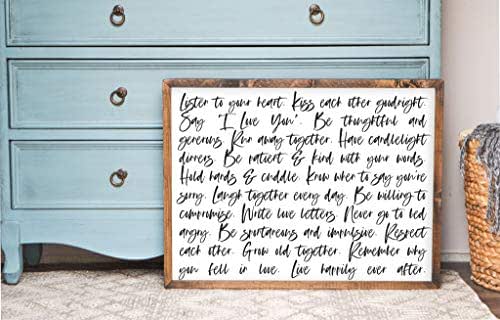 Listen to your heart. Kiss each other goodnight.
Say 'I Love You'. Be thoughtful and
generous. Run away together. Have candlelight
dinners. Be patient & kind with your words.
Hold hands & cuddle. Know when to say you're
sorry. Laugh together every day. Be willing to
compromise. Write love letters. Never go to bed
angry. Be spontaneous and impulsive. Respect
each other. Grow old together. Remember why
you fell in love. Live happily ever after.